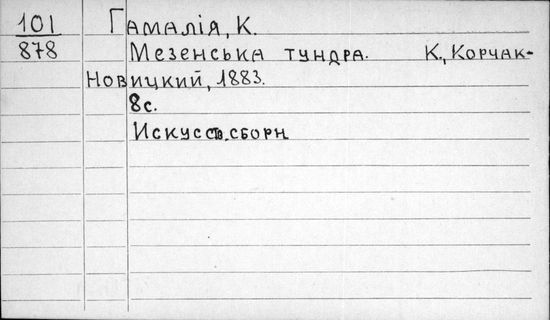 101 Гамалія, К.
878 Мезенська тундра. К., Корчак-
Новицкий, 1883.
8с.
Искусств. сборн